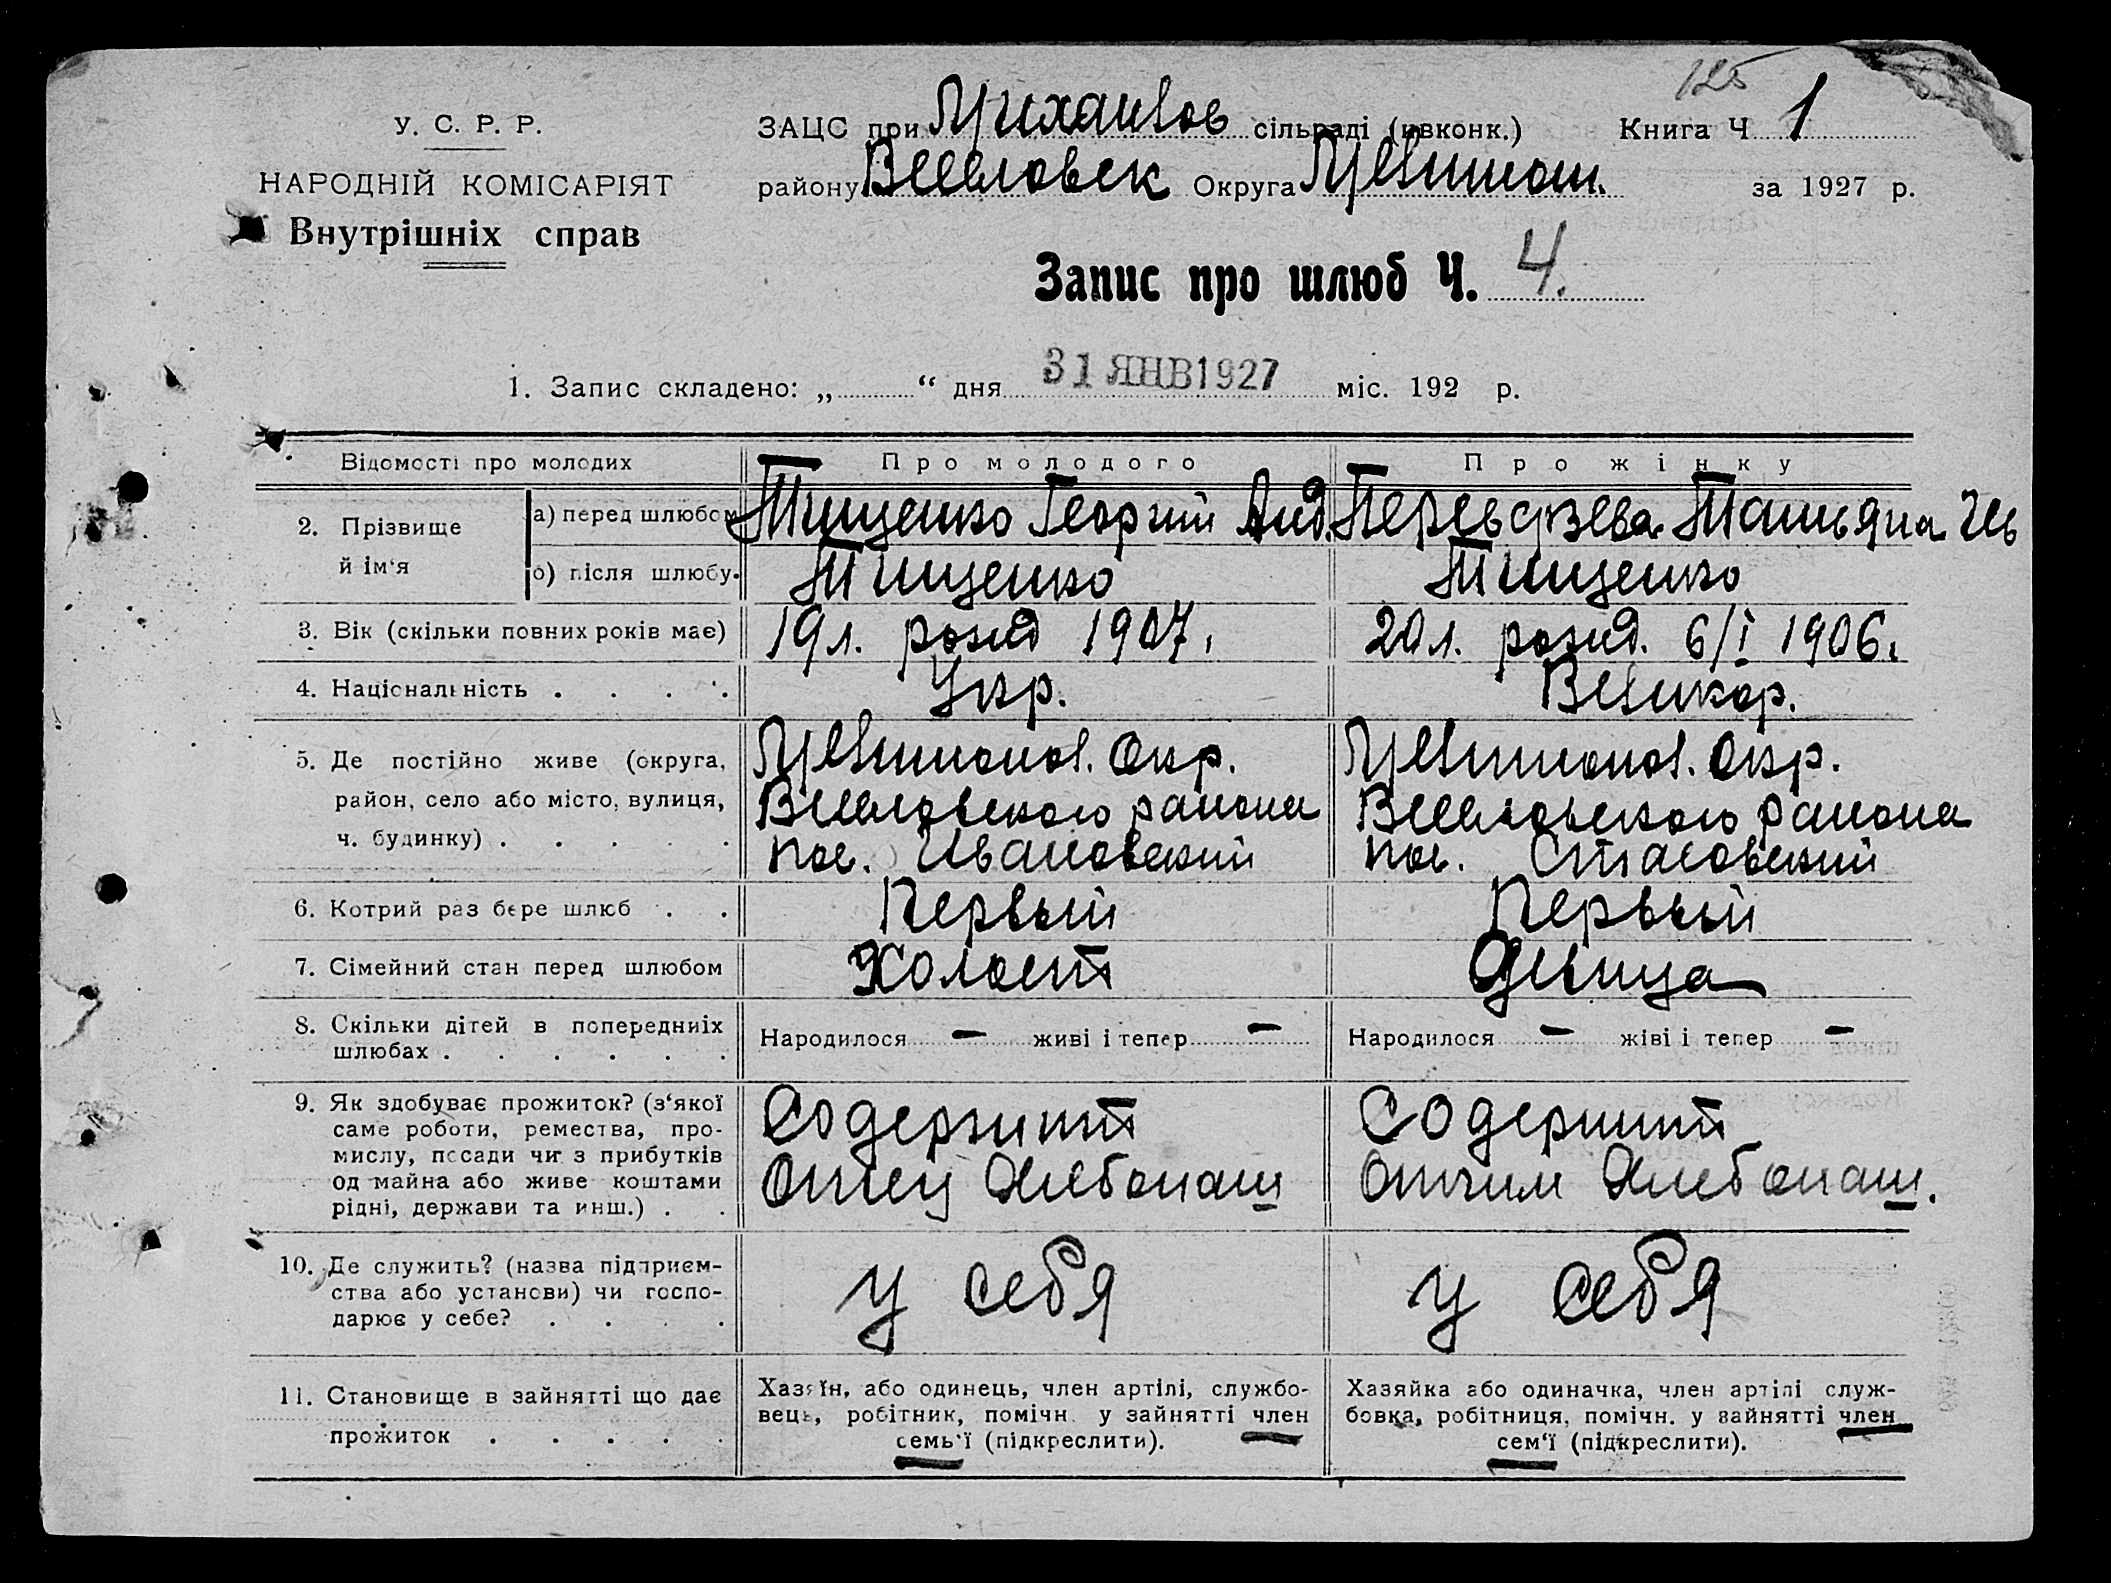 125
У. С. Р. Р.
НАРОДНІЙ КОМІСАРІЯТ
Внутрішніх справ
ЗАЦС при Михайлов сільраді (ивконк.) Книга Ч 1
району Веселовск Округа Мелитоп. за 1927 р.
Запис про шлюб Ч. 4.
1. Запис складено: „ “ дня 31 ЯНВ 1927 міс. 192 р.
Відомості про молодих Про молодого Про жінку
2. Прізвище й ім‘я
а) перед шлюбом Тищенко Георгий Анд. Переверзева Татьяна
б) після шлюбу. Тищенко Тищенко
3. Вік (скільки повних років має) 19 л. рожд 1907. 20 л. рожд. 6/I 1906.
4. Національність . . . . Укр. Великор.
5. Де постійно живе (округа, Мелитопол. Окр. Мелитопол. Окр.
район, село або місто, вулиця, Веселовского района Веселовского района
ч. будинку) . . . . . пос. Ивановский пос. Стасовский
6. Котрий раз бере шлюб . . Первый Первый
7. Сімейний стан перед шлюбом Холост Девица
8. Скільки дітей в попередніх Народилося — живі і тепер — Народилося — жіві і тепер —
шлюбах . . . . . .
9. Як здобуває прожиток? (з‘якої Содержит Содержит
саме роботи, ремества, про-
мислу, посади чи з прибутків Отец Хлебопаш Отчим Хлебопаш.
од майна або живе коштами
рідні, держави та инш.) . .
10. Де служить? (назва підприєм- у себя у себя
ства або установи) чи госпо-
дарює у себе? . . . .
11. Становище в зайнятті що дає Хазяїн, або одинець, член артілі, службо- Хазяйка або одиначка, член артілі служ-
прожиток . . . . . вець, робітник, помічн. у зайнятті член бовка, робітниця, помічн. у зайнятті член
семь‘ї (підкреслити). сем‘ї (підкреслити).